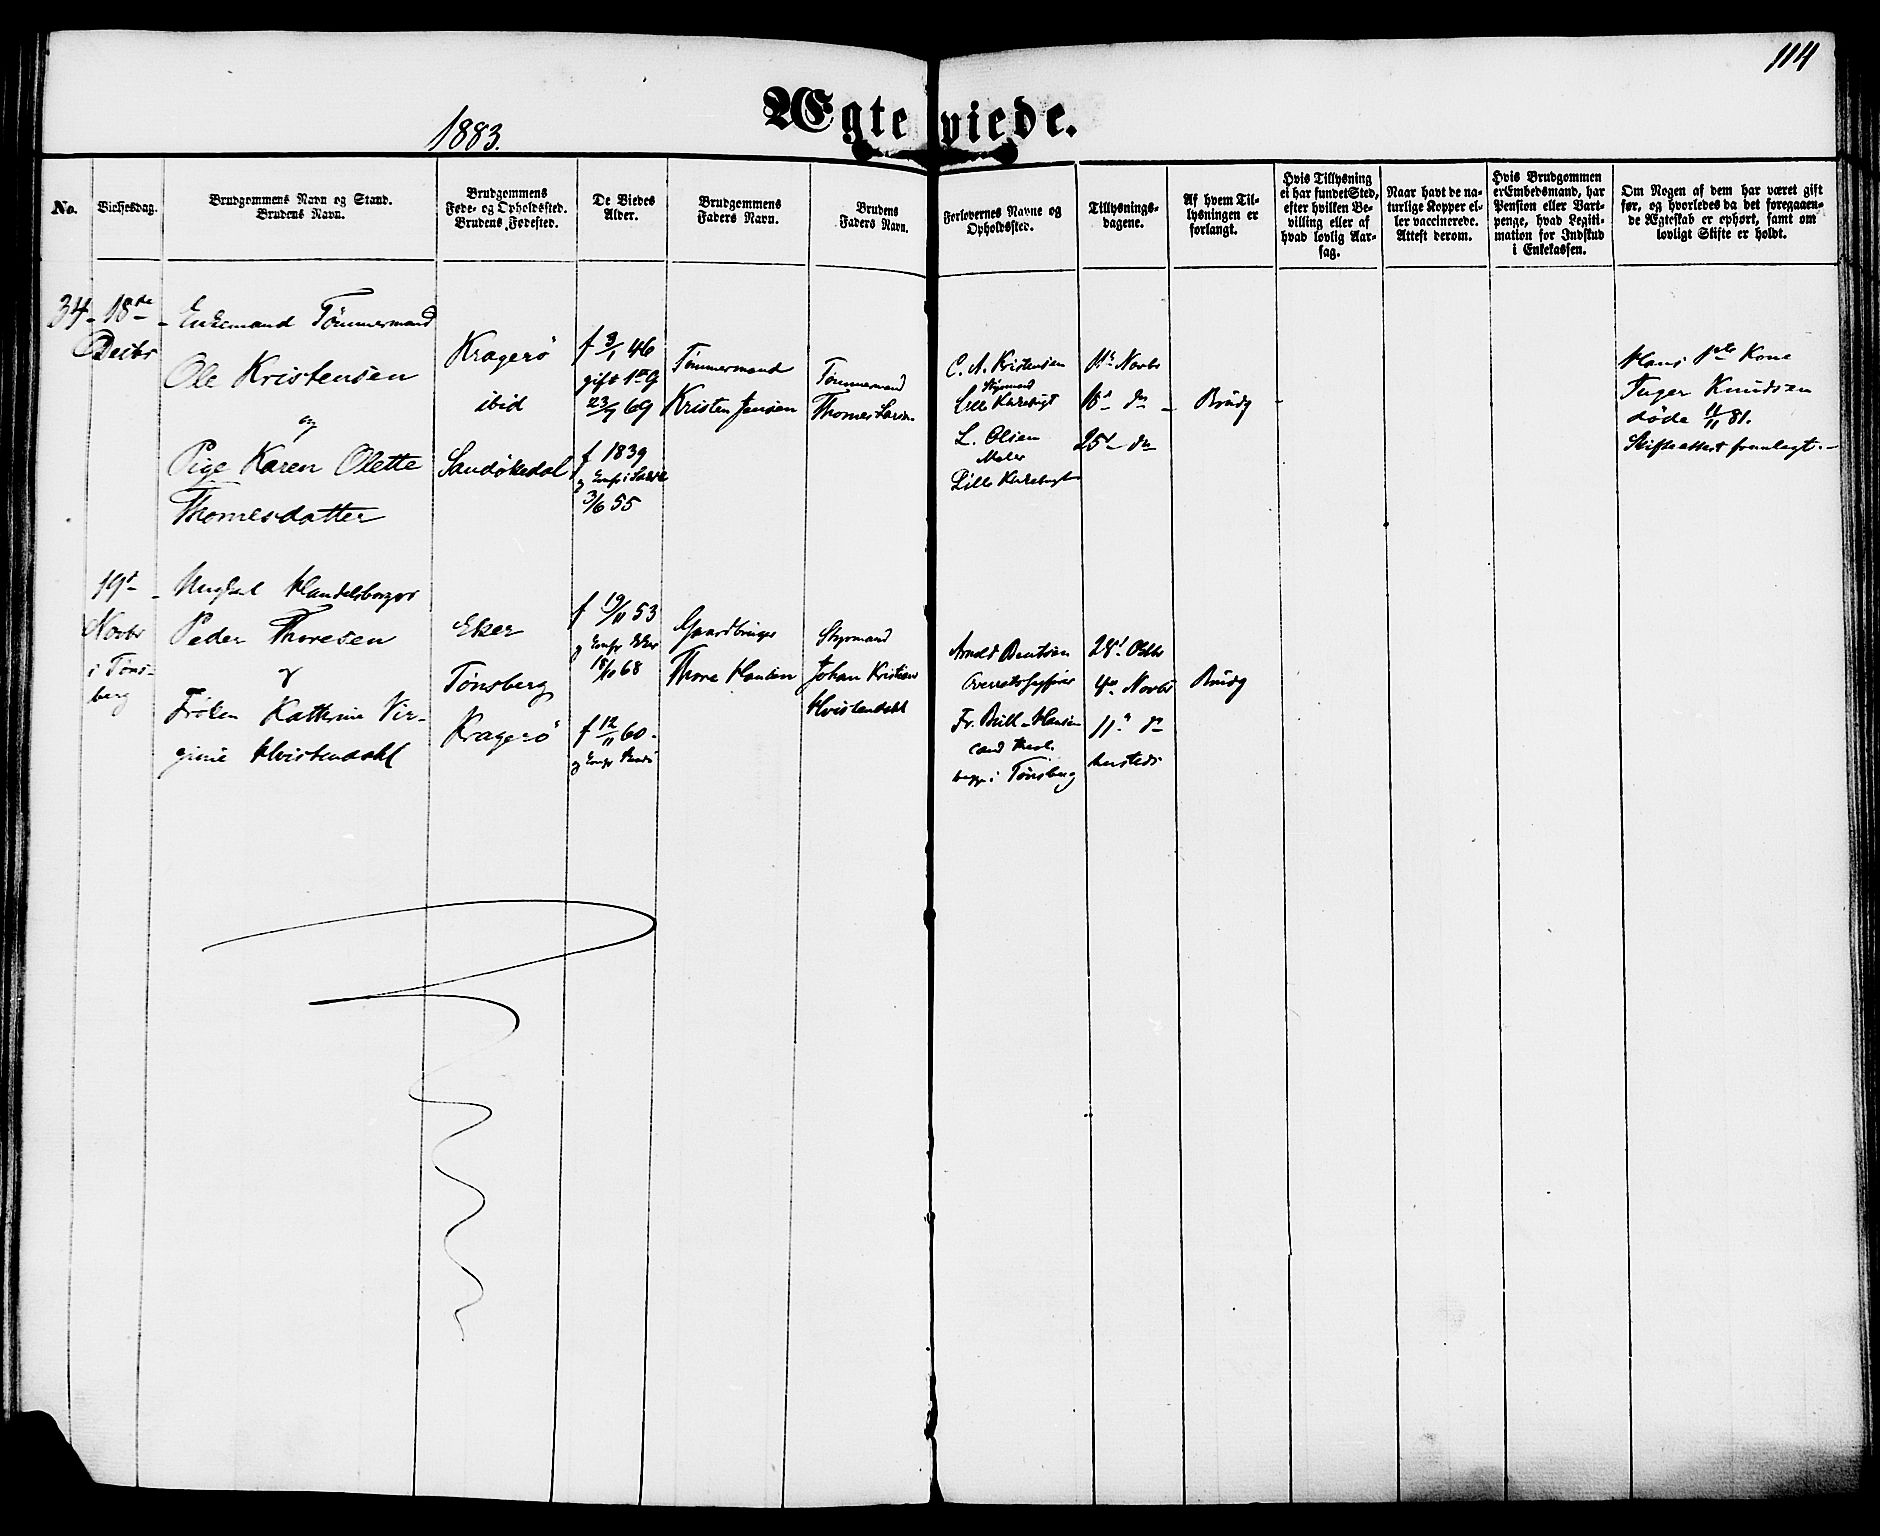 114
1883.
Ægteviede.
No.
Vielsesdag.
Brudgommens Navn og Stand.
Brudens Navn.
Brudgommens
Føde- og Opholdssted.
Brudens Fødested.
De Viedes
Alder.
Brudgommens
Faders Navn.
Brudens
Faders Navn.
Forlovernes Navne og
Opholdssted.
Tillysnings-
dagene.
Af hvem Til-
lysningen er
forlangt.
Hvis Tillysning
ei har fundet Sted,
efter hvilken Be-
villing eller af
hvad lovlig Aar-
sag.
Naar havt de na-
turlige Kopper el-
ler vaccinerede.
Attest derom.
Hvis Brudgommen
er Embedsmand, har
Pension eller Vart-
penge, hvad Legiti-
mation for Indskud
i Enkekassen.
Om Nogen af dem har været gift
før, og hvorledes da det foregaaen-
de Ægteskab er ophørt, samt om
lovligt Skifte er holdt.
34 - 18de -
Decbr
Enkemand Tømmermand
Ole Kristensen
og
Pige Karen Olette
Thomesdatter
Kragerø
ibid
Sandøkedal
f 3/1 46
gift 1ste G
23/9 69
f 1839
3/6 55
Tømmermand
Kristen Jensen
Tømmermand
Thomes
C. A. Kristensen
Styrmand
Lille
L. Olsen
Maler
Lille
11te Novbr
18de do
25de do
Brudg
Hans 1ste Kone
Inger Knudsen
døde 11/11 81.
Skifteattest fremlagt. -
19de -
Novbr
i Tøns-
berg
Ungkarl Handelsborger
Peder Thoresen
&
Frøken Kathrine Vir-
ginie Hvistendahl
Eker
Tønsberg
Kragerø
f 19/11 53
18/10 68
f 12/11 60.
Gaardbruger
Thore Hansen
Styrmand
Johan Kristian
Hvistendahl
Arnold Bentsen
Overretssagfører
Fr. Hansen
cand theol.
begge i Tønsberg
28de Octbr
4de Novbr
11te do
hersteds
Brudg